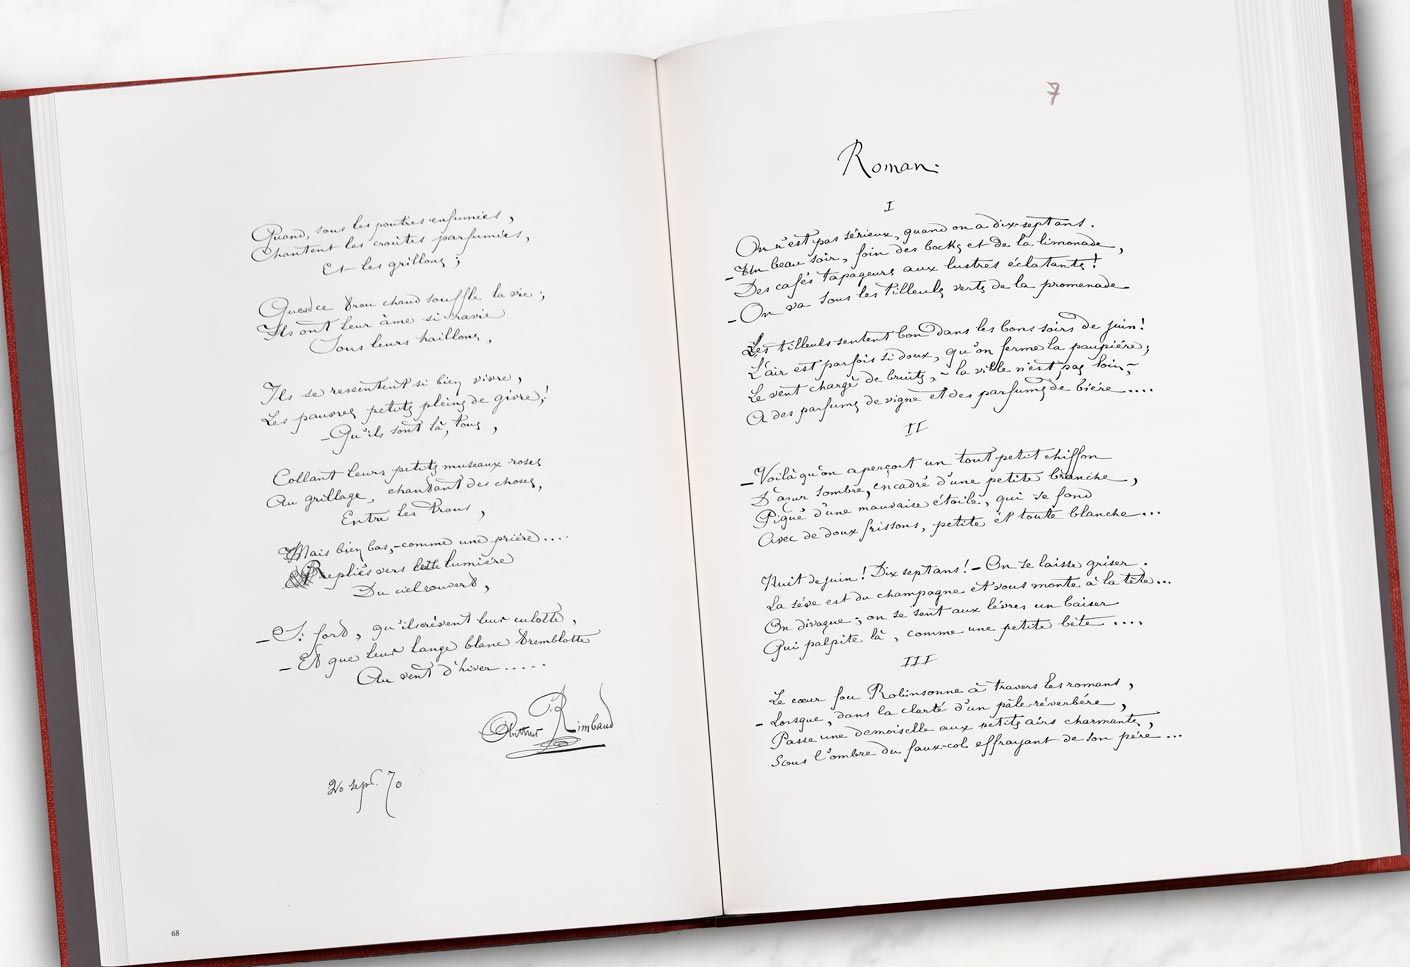 Quand, sous les poutres enfumées,
Chantent les croûtes parfumées,
Et les grillons ;
Que ce trou chaud souffle la vie ;
Ils ont leur âme si ravie
Sous leurs haillons,
Ils se ressentent si bien vivre,
Les pauvres petits pleins de givre,!
– Qu'ils sont là, tous,
Collant leurs petits museaux roses
Au grillage, chantant des choses,
Entre les trous,
Mais bien bas, – comme une prière....
Repliés vers cette lumière
Du ciel rouvert,
– Si fort, qu'ils crèvent leur culotte,
– Et que leur lange blanc tremblotte
Au vent d'hiver.....
Arthur Rimbaud
20 sept. 70
68
7
Roman.
I
On n'est pas sérieux, quand on a dix-sept ans.
– Un beau soir, foin des bocks et de la limonade,
Des cafés tapageurs aux lustres éclatants !
– On va sous les tilleuls verts de la promenade
Les tilleuls sentent bon dans les bons soirs de juin !
L'air est parfois si doux, qu'on ferme la paupière ;
Le vent chargé de bruits, – la ville n'est pas loin, –
A des parfums de vigne et des parfums de bière....
II
– Voilà qu'on aperçoit un tout petit chiffon
D'azur sombre, encadré d'une petite branche,
Piqué d'une mauvaise étoile, qui se fond
Avec de doux frissons, petite et toute blanche...
Nuit de juin ! Dix sept ans ! – On se laisse griser.
La sève est du champagne et vous monte à la tête...
On divague ; on se sent aux lèvres un baiser
Qui palpite là, comme une petite bête....
III
Le cœur fou Robinsonne à travers les romans,
– Lorsque, dans la clarté d'un pâle réverbère,
Passe une demoiselle aux petits airs charmants,
Sous l'ombre du faux-col effrayant de son père...